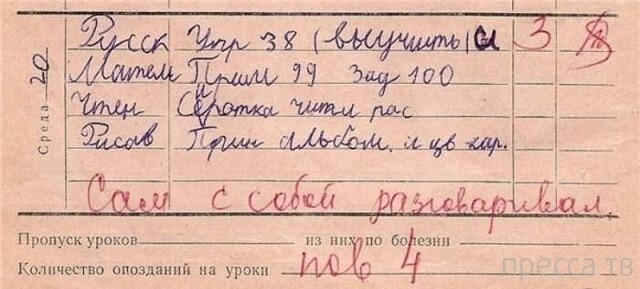 Среда 20
Русск Упр 38 (выучить) 3
Матем Прим 99 Зад 100
Чтен Сиротка читл рас
Рисов Прин альбом. и цв кар.
Сам с собой разговаривал
Пропуск уроков из них по болезни
Количество опозданий на уроки пов 4
пресса тв